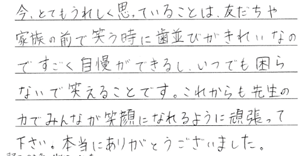 今、とてもうれしく思っていることは、友だちや
家族の前で笑う時に歯並びがきれいなの
ですごく自慢ができるし、いつでも困ら
ないで笑えることです。これからも先生の
力でみんなが笑顔になれるように頑張って
下さい。本当にありがとうございました。